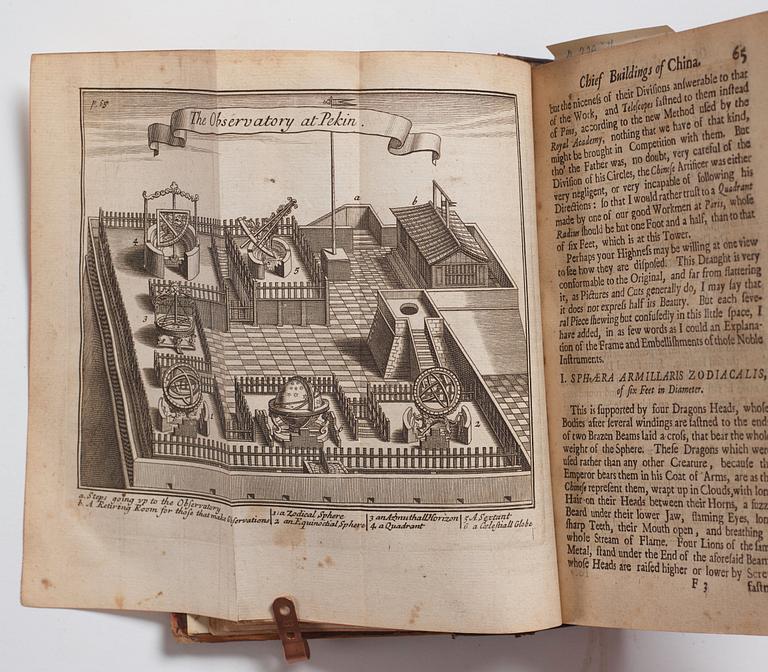 p. 65
The Observatory at Pekin.
a
b
4
5
3
1
2
a. Steps going up to the Observatory
b. A Retiring Room for those that make Observations
1: a Zodical Sphere
2 an Equinoctial Sphere
3 an Azmuthall Horizon
4. a Quadrant
5 A Sextant
6 a Cœlestiall Globe
Chief Buildings of China. 65
but the niceness of their Divisions answerable to that
of the Work, and Telescopes fastned to them instead
of Pins, according to the new Method used by the
Royal Academy, nothing that we have of that kind,
might be brought in Competition with them. But
tho' the Father was, no doubt, very careful of the
Division of his Circles, the Chinese Artificer was either
very negligent, or very incapable of following his
Directions: so that I would rather trust to a Quadrant
made by one of our good Workmen at Paris, whose
Radius should be but one Foot and a half, than to that
of six Feet, which is at this Tower.
Perhaps your Highness may be willing at one view
to see how they are disposed. This Draught is very
conformable to the Original, and far from flattering
it, as Pictures and Cuts generally do, I may say that
it does not express half its Beauty. But each seve-
ral Piece shewing but confusedly in this little space, I
have added, in as few words as I could an Explana-
tion of the Frame and Embellishments of those Noble
Instruments.
I. SPHÆRA ARMILLARIS ZODIACALIS,
of six Feet in Diameter.
This is supported by four Dragons Heads, whose
Bodies after several windings are fastned to the ends
of two Brazen Beams laid a-cross, that bear the whole
weight of the Sphere. These Dragons which were
used rather than any other Creature, because the
Emperor bears them in his Coat of Arms, are as the
Chinese represent them, wrapt up in Clouds, with long
Hair on their Heads between their Horns, a fuzz
Beard under their lower Jaw, flaming Eyes, long
sharp Teeth, their Mouth open, and breathing
whole Stream of Flame. Four Lions of the same
Metal, stand under the End of the aforesaid Beams
whose Heads are raised higher or lower by Screw
F 3
fastn